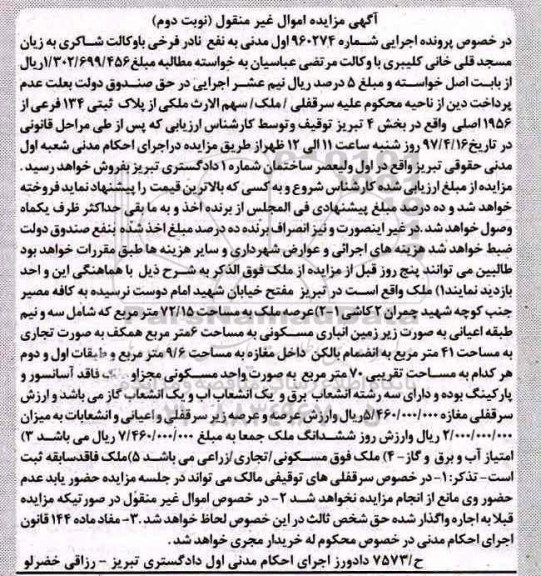 آگهی مزایده اموال غیر منقول (نوبت دوم)
در خصوص پرونده اجرایی شماره ۹۶۰۲۷۴ اول مدنی به نفع نادر فرخی باوکالت شاکری به زیان
مسجد قلی خانی کلیبری با وکالت مرتضی عباسیان به خواسته مطالبه مبلغ ۱/۳۰۲/۶۹۹/۴۵۶ریال
از بابت اصل خواسته و مبلغ ۵ درصد ریال نیم عشر اجرایی در حق صندوق دولت بعلت عدم
پرداخت دین از ناحیه محکوم علیه سرقفلی / ملک/ سهم الارث ملکی از پلاک ثبتی ۱۳۴ فرعی از
۱۹۵۶ اصلی واقع در بخش ۴ تبریز توقیف وتوسط کارشناس ارزیابی که پس از طی مراحل قانونی
در تاریخ۹۷/۴/۱۶ روز شنبه ساعت ۱۱ الی ۱۲ ظهراز طریق مزایده دراجرای احکام مدنی شعبه اول
مدنی حقوقی تبریز واقع در اول ولیعصر ساختمان شماره ۱ دادگستری تبریز بفروش خواهد رسید.
مزایده از مبلغ ارزیابی شده کارشناس شروع و به کسی که بالاترین قیمت را پیشنهاد نماید فروخته
خواهد شد و ده درصد مبلغ پیشنهادی فی المجلس از برنده اخذ و به ما بقی حداکثر ظرف یکماه
وصول خواهد شد.در غیر اینصورت و نیز انصراف برنده ده درصد مبلغ اخذ شده بنفع صندوق دولت
ضبط خواهد شد هزینه های اجرائی و عوارض شهرداری و سایر هزینه ها طبق مقررات خواهد بود
طالبین می توانند پنج روز قبل از مزایده از ملک فوق الذکر به شرح ذیل با هماهنگی این و احد
بازدید نمایند۱) ملک واقع است در تبریز مفتح خیابان شهید امام دوست نرسیده به کافه مصیر
جنب کوچه شهید چمران ۲ کاشی ۱-۲)عرصه ملک به مساحت ۷۲/۱۵ متر مربع که شامل سه و نیم
طبقه اعیانی به صورت زیر زمین انباری مسکونی به مساحت ۶متر مربع همکف به صورت تجاری
به مساحت ۴۱ متر مربع به انضمام بالکن داخل مغازه به مساحت ۹/۶ متر مربع و طبقات اول و دوم
هر کدام به مساحت تقریبی ۷۰ متر مربع به صورت واحد مسکونی مجزاو فاقد آسانسور و
پارکینگ بوده و دارای سه رشته انشعاب برق و یک انشعاب آب و یک انشعاب گاز می باشد و ارزش
سرقفلی مغازه ۵/۴۶۰/۰۰۰/۰۰۰ریال وارزش عرصه و عرصه زیر سرقفلی و اعیانی و انشعابات به میزان
۲/۰۰۰/۰۰۰/۰۰۰ ریال وارزش روز ششدانگ ملک جمعا به مبلغ ۷/۴۶۰/۰۰۰/۰۰۰ ریال می باشد ۳)
امتیاز آب و برق و گاز- ۴) ملک فوق مسکونی/تجاری/زراعی می باشد ۵)ملک فاقدسابقه ثبت
است- تذکر:۱- در خصوص سرقفلی های توقیفی مالک می تواند در جلسه مزایده حضور یابد عدم
حضور وی مانع از انجام مزایده نخواهد شد ۲- در خصوص اموال غیر منقول در صورتیکه مزایده
قبلا به اجاره واگذار شده حق شخص ثالث در این خصوص لحاظ خواهد شد.۳- مفاد ماده ۱۴۴ قانون
اجرای احکام مدنی در خصوص محکوم له خریدار مجری خواهد شد.
ح/۷۵۷۳ دادورز اجرای احکام مدنی اول دادگستری تبریز - رزاقی خضرلو